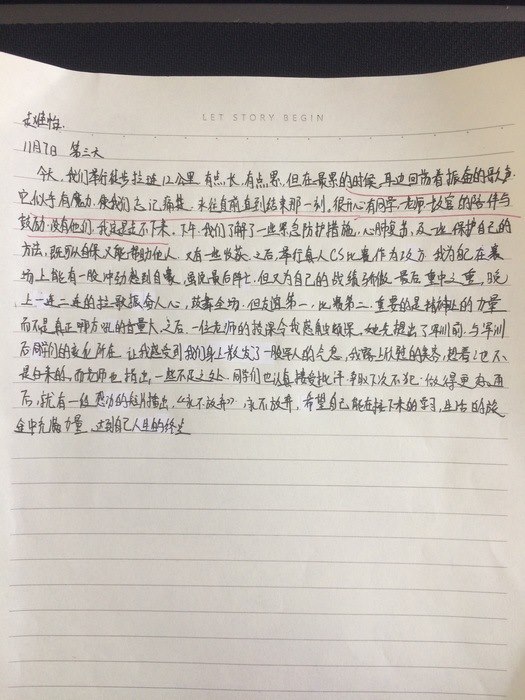 LET STORY BEGIN
11月7日 第三天
今天,我们举行徒步拉练12公里,有点长,有点累,但在最累的时候,耳边回荡着振奋的歌声,
它似乎有魔力,使我们忘记痛楚,永往直前直到结束那一刻。很开心有同学、老师、教官的陪伴与
鼓励,没有他们,我这是走不下来。下午,我们了解了一些紧急防护措施,心肺复苏,及一些保护自己的
方法,既可以自保又能帮助他人,又有一些收获。之后,举行真人CS比赛作为攻方,我为能在赛
场上能有一股冲劲感到自豪,虽说最后阵亡,但又为自己的战绩骄傲。最后,重中之重,晚
上一连二连的拉歌振奋人心,鼓舞全场,但友谊第一,比赛第二,重要的是精神上的力量
而不是真正哪方吼的音量大。之后,一位老师的
后同学们的变化所在,让我感受到我们身上散发了一股
是白来的,而老师也指出一些不足之处,同学们也认真接受批评,争取下次不犯,做得更好,随
后,就有一组感动的短片播出,《永不放弃》。永不放弃,希望自己能在接下来的学习、生活的旅
途中充满力量,达到自己人生的终点